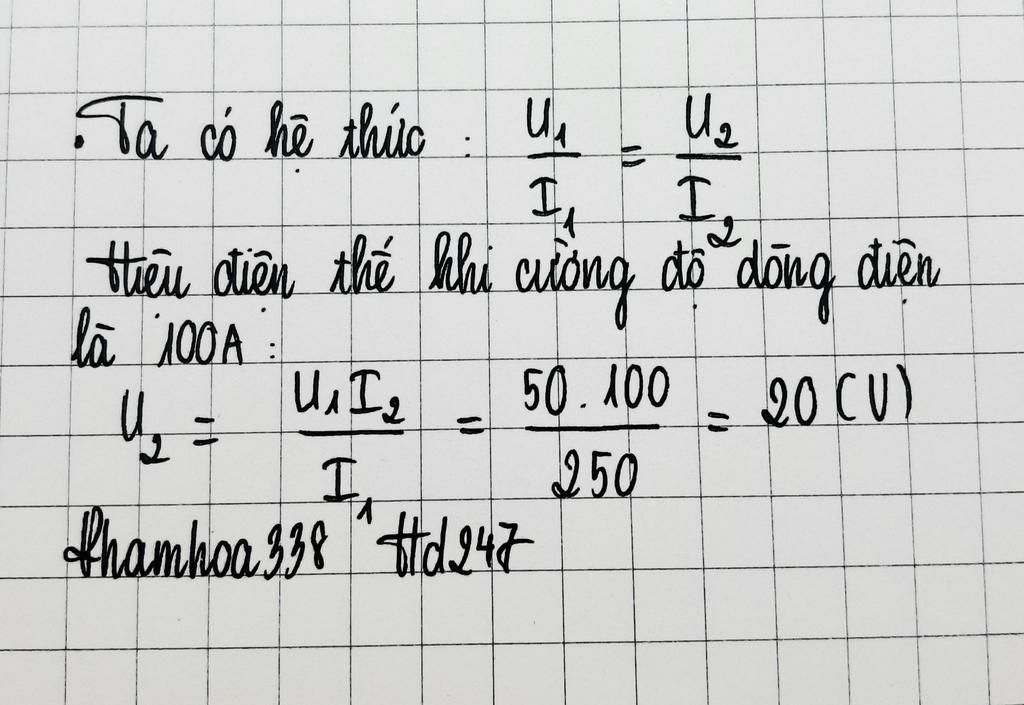 .Ta có hệ thức : U₁/I₁ = U₂/I₂
Hiệu điện thế khi cường độ dòng điện
là 100A :
U₂ = U₁I₂/I₁ = 50.100/250 = 20 (V)
Phamhoa338 Hd247